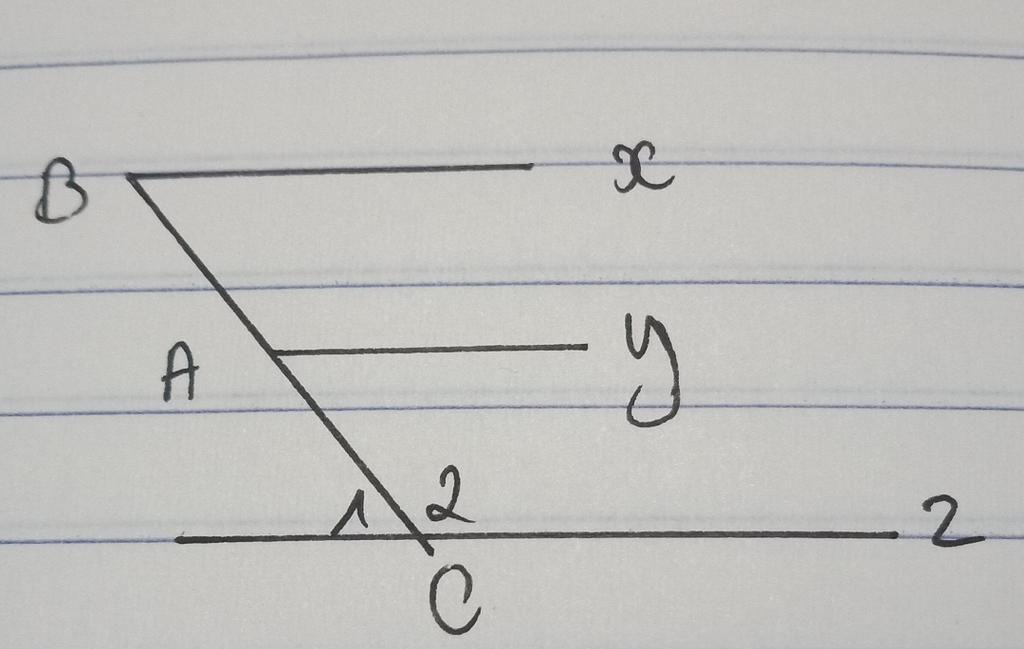 B x
A y
1 2 z
C